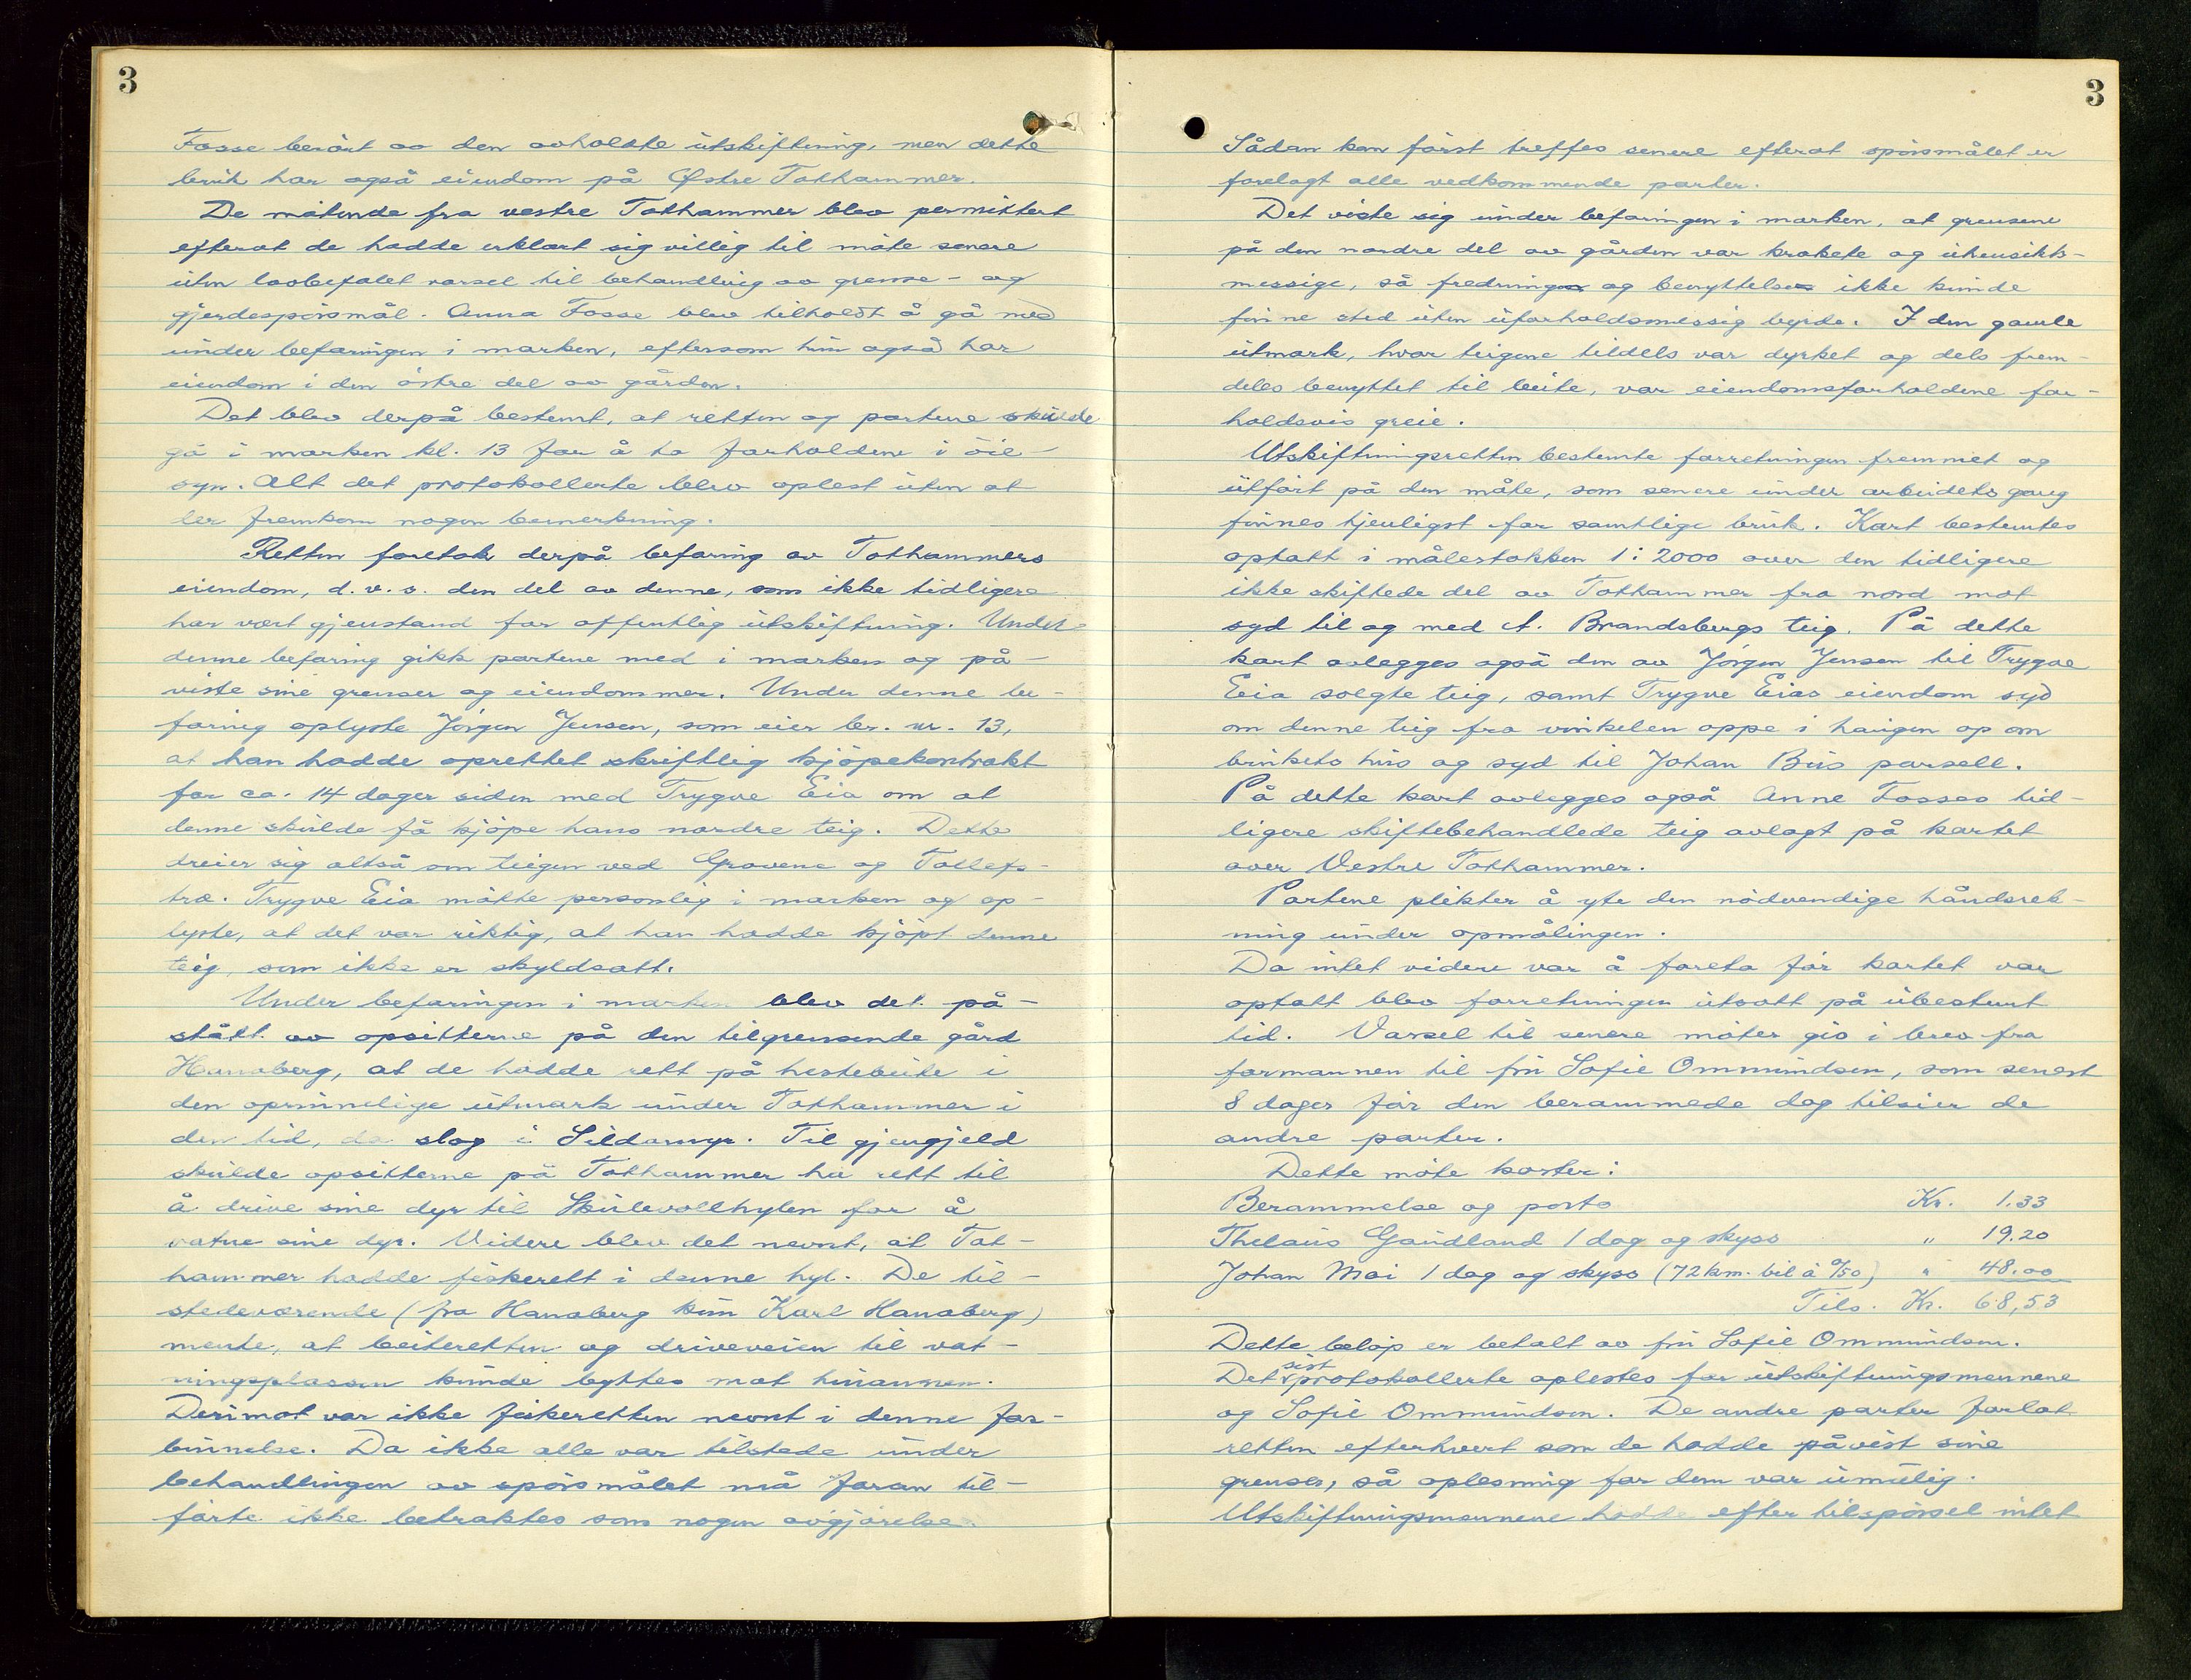 3
Fosse berört av den avholdte utskiftning, men dette
bruk har også eiendom på Østre Tothammer.
De møtende fra vestre Tothammer blev permittert
efterat de hadde erklært sig villig til møte senere
uten lovbefalet varsel til behandling av grense- og
gjerdespörsmål. Anna Fosse blev tilholdt å gå med
under befaringen i marken, eftersom hun også har
eiendom i den östre del av gården.
Det blev derpå bestemt, at retten og partene skulde
gå i marken kl. 13 for å ta forholdene i öie-
syn. Alt det protokollerte blev oplest uten at
der fremkom nogen bemerkning.
Retten foretok derpå befaring av Tothammers
eiendom, d.v.s. den del av denne, som ikke tidligere
har vært gjenstand for offentlig utskiftning. Under
denne befaring gikk partene med i marken og på-
viste sine grenser og eiendommer. Under denne be-
faring oplyste Jörgen Jensen, som eier br. nr. 13,
at han hadde oprettet skriftlig kjöpekontrakt
for ca. 14 dager siden med Trygve Eia om at
denne skulde få kjöpe hans nordre teig. Dette
dreier sig altså om teigen ved Grovene og Tollefs-
træ. Trygve Eia møtte personlig i marken og op-
lyste, at det var riktig, at han hadde kjöpt denne
teig, som ikke er skyldsatt.
Under befaringen i marken blev det på-
stått av opsitterne på den tilgrensende gård
Hanaberg, at de hadde rett på hestebeite i
den oprinnelige utmark under Tothammer i
den tid, de slog i Sildamyr. Til gjengjeld
skulde opsitterne på Tothammer ha rett til
å drive sine dyr til Skulevollhylen for å
vatne sine dyr. Videre blev det nevnt, at Tot-
hammer hadde fiskerett i denne hyl. De til-
stedeværende (fra Hanaberg kun Karl Hanaberg)
mente, at beiteretten og driveveien til vat-
ningsplassen kunde byttes mot hinannen.
Derimot var ikke fiskeretten nevnt i denne for-
binnelse. Da ikke alle var tilstede under
behandlingen av spörsmålet må foran til-
förte ikke betraktes som nogen avgjörelse.
3
Sådan kan först treffes senere efterat spörsmålet er
forelagt alle vedkommende parter.
Det viste sig under befaringen i marken, at grensene
på den nordre del av gården var krokete og uhensikts-
messige, så fredning og benyttelse ikke kunde
finne sted uten uforholdsmessig byrde. I den gamle
utmark, hvor teigene tildels var dyrket og dels frem-
deles benyttet til beite, var eiendomsforholdene for-
holdsvis greie.
Utskiftningsretten bestemte forretningen fremmet og
utfört på den måte, som senere under arbeidets gang
finnes tjenligst for samtlige bruk. Kart bestemtes
optatt i målestokken 1:2000 over den tidligere
ikke skiftede del av Tothammer fra nord mot
syd til og med A. Brandsbergs teig. På dette
kart avlegges også den av Jörgen Jensen til Trygve
Eeia solgte teig, samt Trygve Eias eiendom syd
om denne teig fra vinkelen oppe i haugen op om
brukets hus og syd til Johan Bus parsell.
På dette kart avlegges også Anne Fosses tid-
ligere skiftebehandlede teig avlagt på kartet
over Vestre Tothammer.
Partene plikter å yte den nödvendige håndsrek-
ning under opmålingen.
Da intet videre var å foreta för kartet var
optatt blev forretningen utsatt på ubestemt
tid. Varsel til senere möter gis i brev fra
formannen til fru Sofie Ommundsen, som senest
8 dager för den berammede dag tilsier de
andre parter.
Dette möte koster:
Berammelse og porto Kr. 1.33
Thelaus Gaudland 1 dag og skyss " 19.20
Johan Moi 1 dag og skyss (72 km. bil à 0/50) " 48.00
Tils. Kr. 68,53
Dette belöp er betalt av fru Sofie Ommundsen.
Det sist protokollerte oplestes for utskiftningsmennene
og Sofie Ommundsen. De andre parter forlot
retten efterhvert som de hadde påvist sine
grenser, så oplesning for dem var umulig.
Utskiftningsmennene hadde efter tilspörsel intet